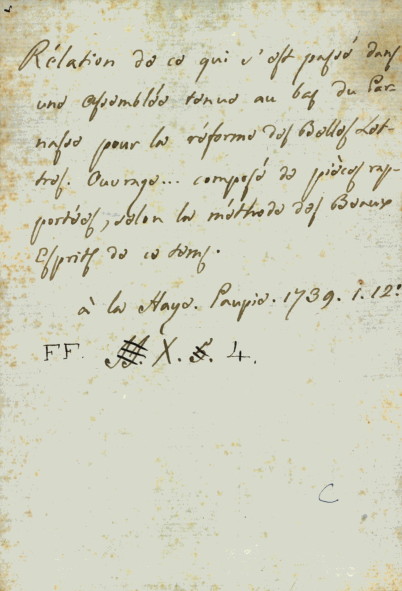 Rélation de ce qui s'est passé dans
une assemblée tenue au bas du Par-
nasse pour la réforme des Belles Let-
tres. Ouvrage... composé de pièces rap-
portées, selon la méthode des Beaux
Esprits de ce tems.
à la Haye. Paupie. 1739. 1. 12°
FF. X. 4.
C